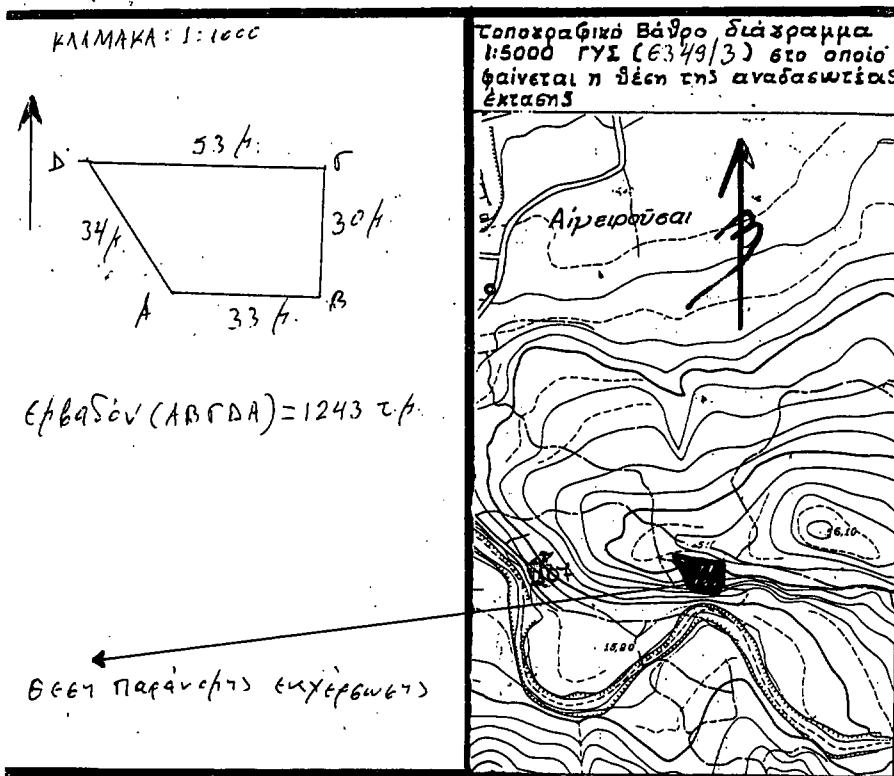 ΚΛΙΜΑΚΑ: 1:1000
Δ
53 μ.
Γ
34 μ.
30 μ.
Α
33 μ.
Β
εμβαδόν (ΑΒΓΔΑ) = 1243 τ.μ.
Θέση παράνομης εκχέρσωσης
Τοπογραφικό Βάθρο διάγραμμα
1:5000 ΓΥΣ (6349/3) στο οποίο
φαίνεται η θέση της αναδασωτέας
έκτασης
Αἱμειροῦσαι